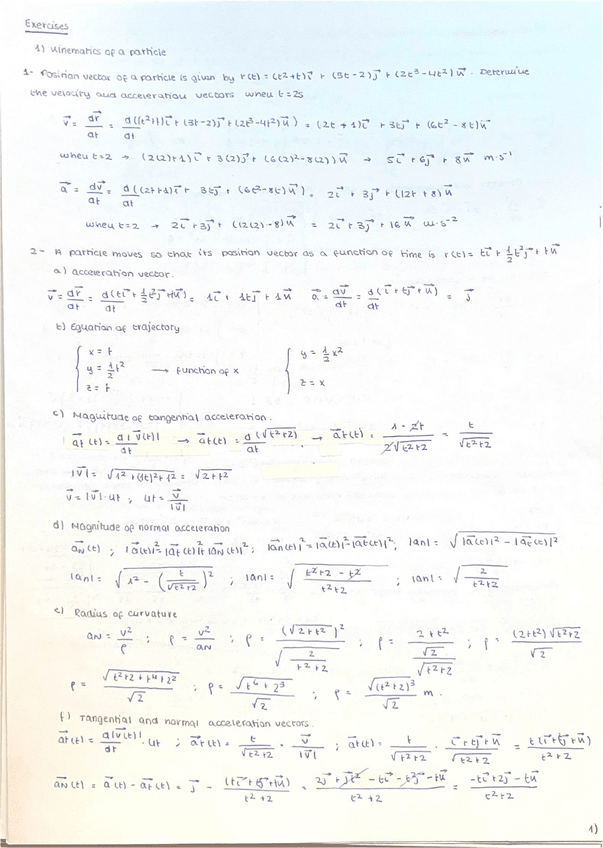 Exercises
1) Kinematics of a particle
1- Position vector of a particle is given by r(t) = (t²+t)i⃗ + (3t-2)j⃗ + (2t³-4t²)u⃗. Determine
the velocity and acceleration vectors when t=2s
v⃗ = dr⃗/dt = d((t²+t)i⃗ + (3t-2)j⃗ + (2t³-4t²)u⃗)/dt = (2t+1)i⃗ + 3tj⃗ + (6t²-8t)u⃗
when t=2 → (2(2)+1)i⃗ + 3(2)j⃗ + (6(2)²-8(2))u⃗ → 5i⃗ + 6j⃗ + 8u⃗ m·s⁻¹
a⃗ = dv⃗/dt = d((2t+1)i⃗ + 3tj⃗ + (6t²-8t)u⃗)/dt = 2i⃗ + 3j⃗ + (12t+8)u⃗
when t=2 → 2i⃗ + 3j⃗ + (12(2)-8)u⃗ = 2i⃗ + 3j⃗ + 16u⃗ m·s⁻²
2- A particle moves so that its position vector as a function of time is r(t) = ti⃗ + 1/2 t²j⃗ + tu⃗
a) acceleration vector.
v⃗ = dr⃗/dt = d(ti⃗ + 1/2 t²j⃗ + tu⃗)/dt = 1i⃗ + 1tj⃗ + 1u⃗ a⃗ = dv⃗/dt = d(i⃗ + tj⃗ + u⃗)/dt = j⃗
b) Equation of trajectory
x = t
y = 1/2 t² → function of x y = 1/2 x²
z = t z = x
c) Magnitude of tangential acceleration.
a⃗t(t) = d|v⃗(t)|/dt → a⃗t(t) = d(√(t²+2))/dt → a⃗t(t) = 1·2t/2√(t²+2) = t/√(t²+2)
|v⃗| = √(1²+(1t)²+1²) = √(2+t²)
v⃗ = |v⃗|·ut ; ut = v⃗/|v⃗|
d) Magnitude of normal acceleration
a⃗N(t) ; |a⃗(t)|² = |a⃗t(t)|² + |a⃗N(t)|² ; |a⃗n(t)|² = |a⃗(t)|² - |a⃗t(t)|² ; |an| = √(|a⃗(t)|² - |a⃗t(t)|²)
|an| = √(1² - (t/√(t²+2))²) ; |an| = √((t²+2-t²)/(t²+2)) ; |an| = √(2/(t²+2))
e) Radius of curvature
aN = v²/ρ ; ρ = v²/aN ; ρ = (√(2+t²))²/√(2/(t²+2)) ; ρ = (2+t²)/(√2/√(t²+2)) ; ρ = (2+t²)√(t²+2)/√2
ρ = √(t²+2+t⁴+2²)/√2 ; ρ = √(t⁶+2³)/√2 ; ρ = √((t²+2)³)/√2 m.
f) Tangential and normal acceleration vectors.
a⃗t(t) = d|v⃗(t)|/dt · ut ; a⃗t(t) = t/√(t²+2) · v⃗/|v⃗| ; a⃗t(t) = t/√(t²+2) · (i⃗+tj⃗+u⃗)/√(t²+2) = t(i⃗+tj⃗+u⃗)/(t²+2)
a⃗N(t) = a⃗(t) - a⃗t(t) = j⃗ - (ti⃗+t²j⃗+tu⃗)/(t²+2) = (2j⃗+jt²-ti⃗-t²j⃗-tu⃗)/(t²+2) = (-ti⃗+2j⃗-tu⃗)/(t²+2)
1)